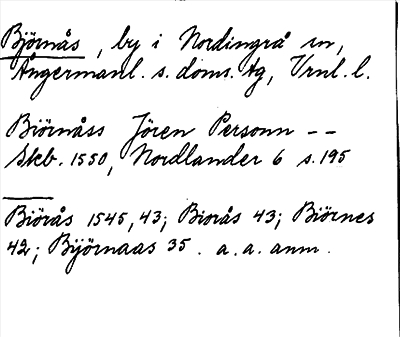 Björnås, by i Nordingrå sn,
Ångermanl. s. doms. tg, Vrnl. l.
Biörnåss Jören Personn --
Skb. 1550, Nordlander 6 s. 195
Biörås 1545, 43; Biorås 43; Biörnes
42; Byörnaas 35. a. a. anm.